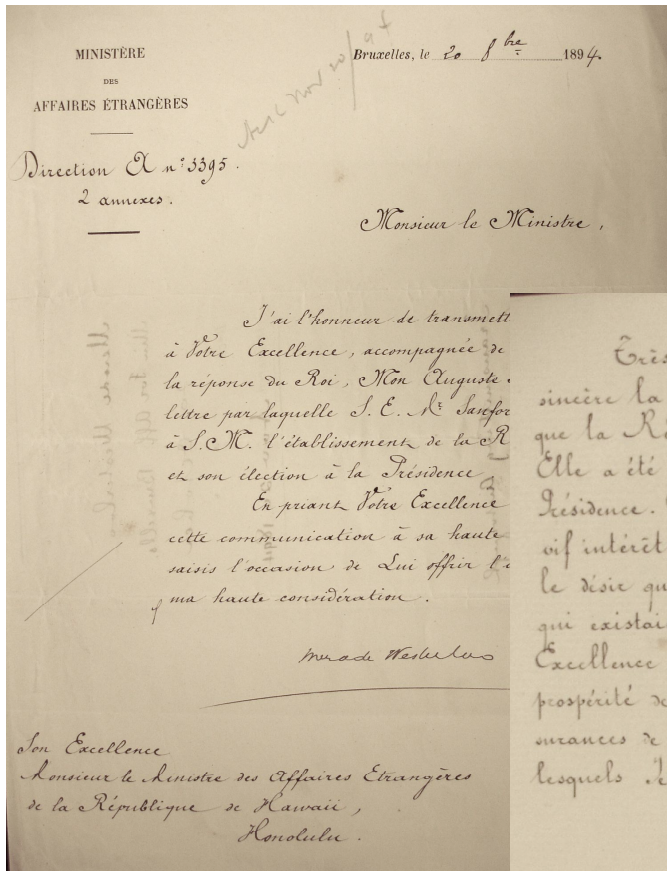 MINISTÈRE
DES
AFFAIRES ÉTRANGÈRES
Bruxelles, le 20 8bre 1894
Nov 20/94
Direction A nº 3395.
2 annexes.
Monsieur le Ministre,
J'ai l'honneur de transmett
à Votre Excellence, accompagnée de
la réponse du Roi, Mon Auguste
lettre par laquelle S. E. Mr Sanfor
à S. M. l'établissement de la R
et son élection à la Présidence
En priant Votre Excellence
cette communication à sa haute
saisis l'occasion de Lui offrir l'
ma haute considération.
Merode Westerloo
Son Excellence
Monsieur le Ministre des Affaires Etrangères
de la République de Hawaii,
Honolulu.
Très
sincère la
que la Ré
Elle a été
Présidence.
vif intérêt
le désir qu
qui existai
Excellence
prospérité de
surances de
lesquels Je